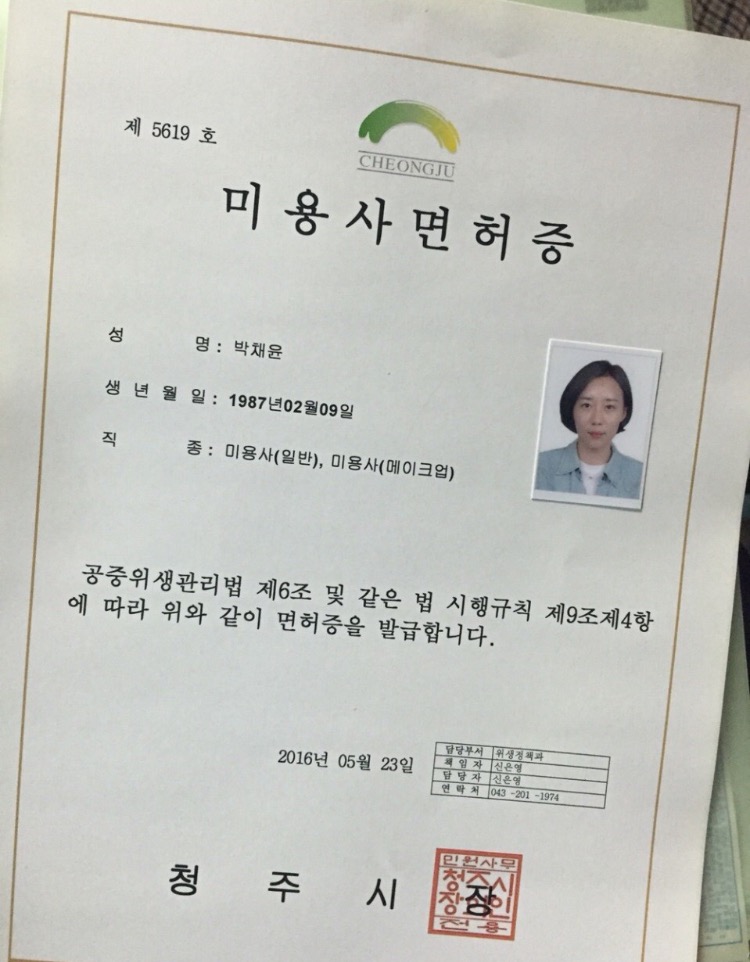 제 5619 호
CHEONGJU
미용사면허증
성 명 : 박채윤
생 년 월 일 : 1987년02월09일
직 종 : 미용사(일반), 미용사(메이크업)
공중위생관리법 제6조 및 같은 법 시행규칙 제9조제4항
에 따라 위와 같이 면허증을 발급합니다.
2016년 05월 23일
담당부서 위생정책과
책 임 자 신은영
담 당 자 신은영
연 락 처 043 -201 -1974
청 주 시 장
민원사무
청주시
장의인
전용